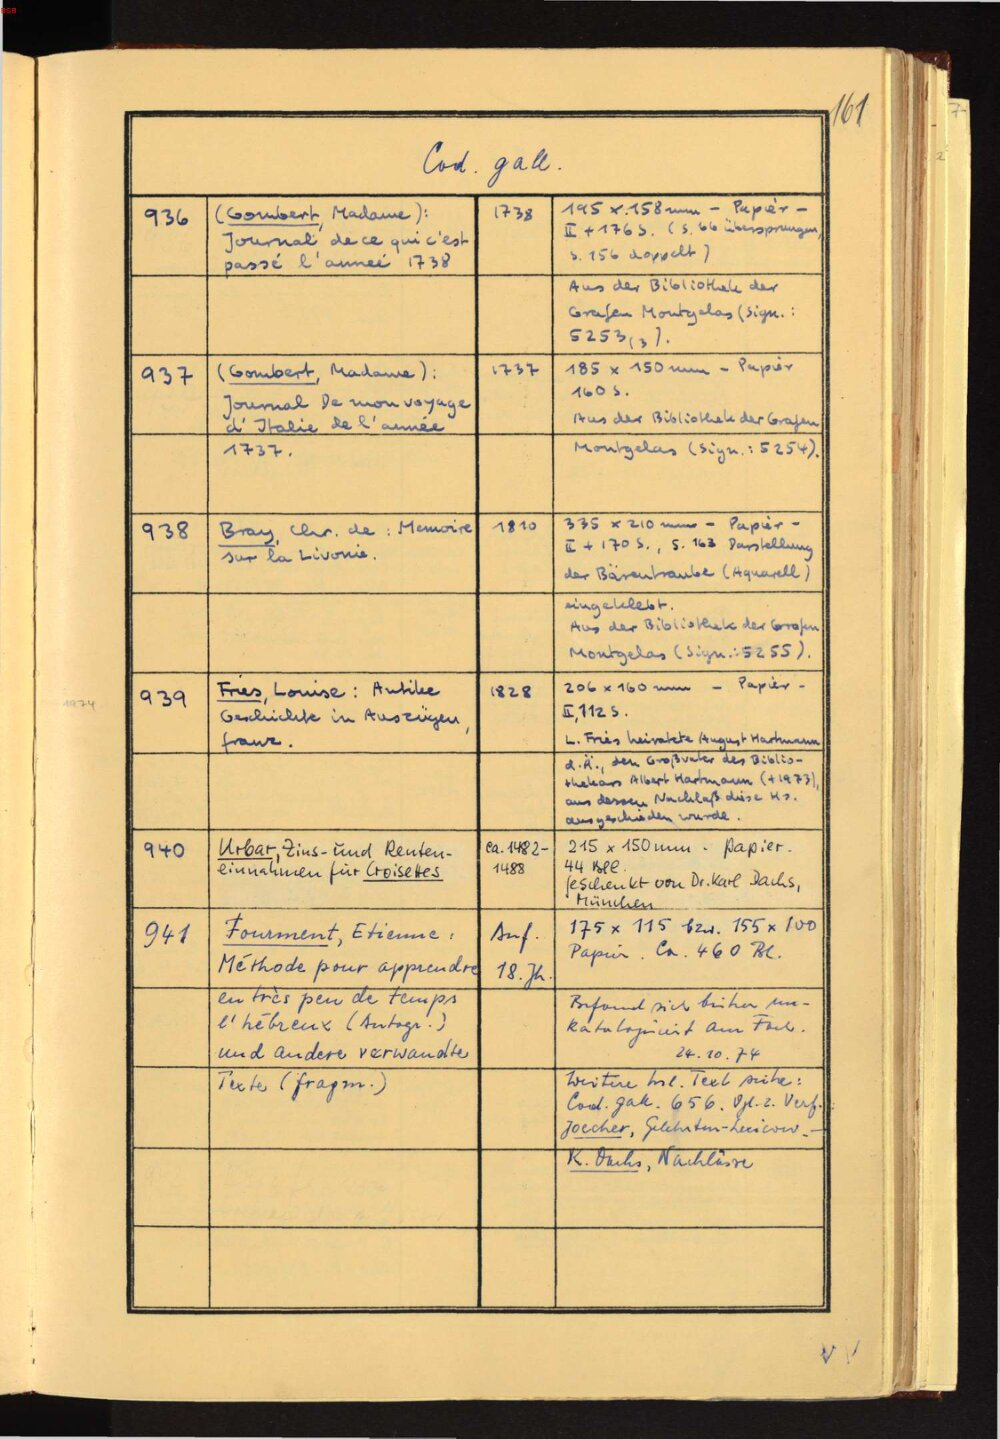 161
Cod. gall.
936
(Gombert, Madame):
Journal de ce qui c'est
passé l'anneé 1738
1738
195 x 158 mm - Papier -
II + 176 S. (S. 66 übersprungen,
S. 156 doppelt)
Aus der Bibliothek der
Grafen Montgelas (Sign.:
5253(3).
937
(Gombert, Madame):
Journal De mon voyage
d'Italie de l'année
1737.
1737
185 x 150 mm - Papier
160 S.
Aus der Bibliothek der Grafen
Montgelas (Sign.: 5254).
938
Bray, Chr. de: Memoire
sur la Livonie.
1810
335 x 210 mm - Papier -
II + 170 S., S. 163 Darstellung
der Bärentraube (Aquarell)
eingeklebt.
Aus der Bibliothek der Grafen
Montgelas (Sign.: 5255).
1974
939
Fries, Louise: Antike
Geschichte in Auszügen,
franz.
1828
206 x 160 mm - Papier -
II, 112 S.
L. Fries heiratete August Hartmann
d. Ä., den Großvater des Biblio-
thekars Albert Hartmann (+1973),
aus dessen Nachlaß diese Hs.
ausgeschieden wurde.
940
Urbar, Zins- und Renten-
einnahmen für Croisettes
ca. 1482-
1488
215 x 150 mm - Papier.
44 Bll.
geschenkt von Dr. Karl Dachs,
München
941
Fourment, Etienne:
Méthode pour apprendre
en très peu de temps
l'hébreux (Autogr.)
und andere verwandte
Texte (fragm.)
Anf.
18. Jh.
175 x 115 bzw. 155 x 100
Papier. Ca. 460 Bl.
Befand sich bisher un-
katalogisiert am Fach.
24.10.74
Weitere hsl. Text siehe:
Cod. gall. 656. Vgl. z. Verf.:
Joecher, Gelehrten-Lexicon. -
K. Dachs, Nachlässe